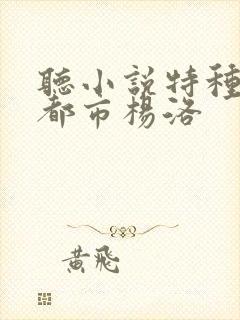 聽小説特種
都市楊洛
黃飛